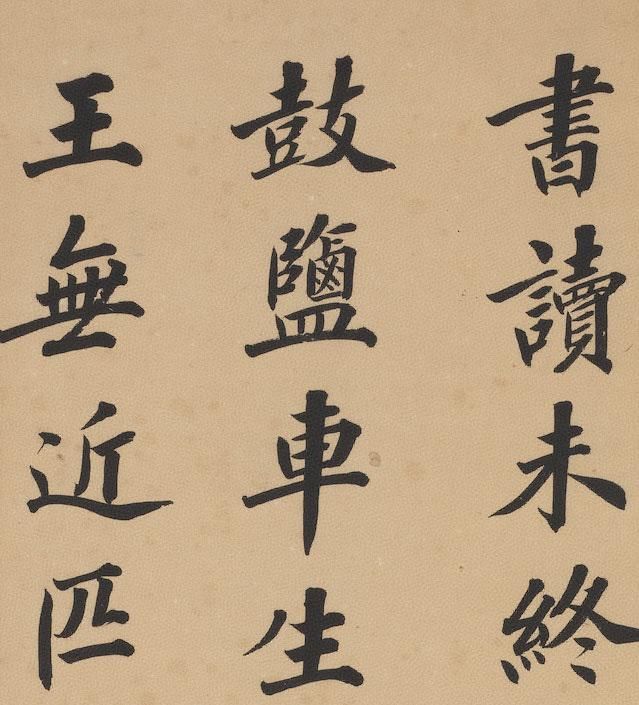 書讀未終
鼓鹽車生
王無近匹